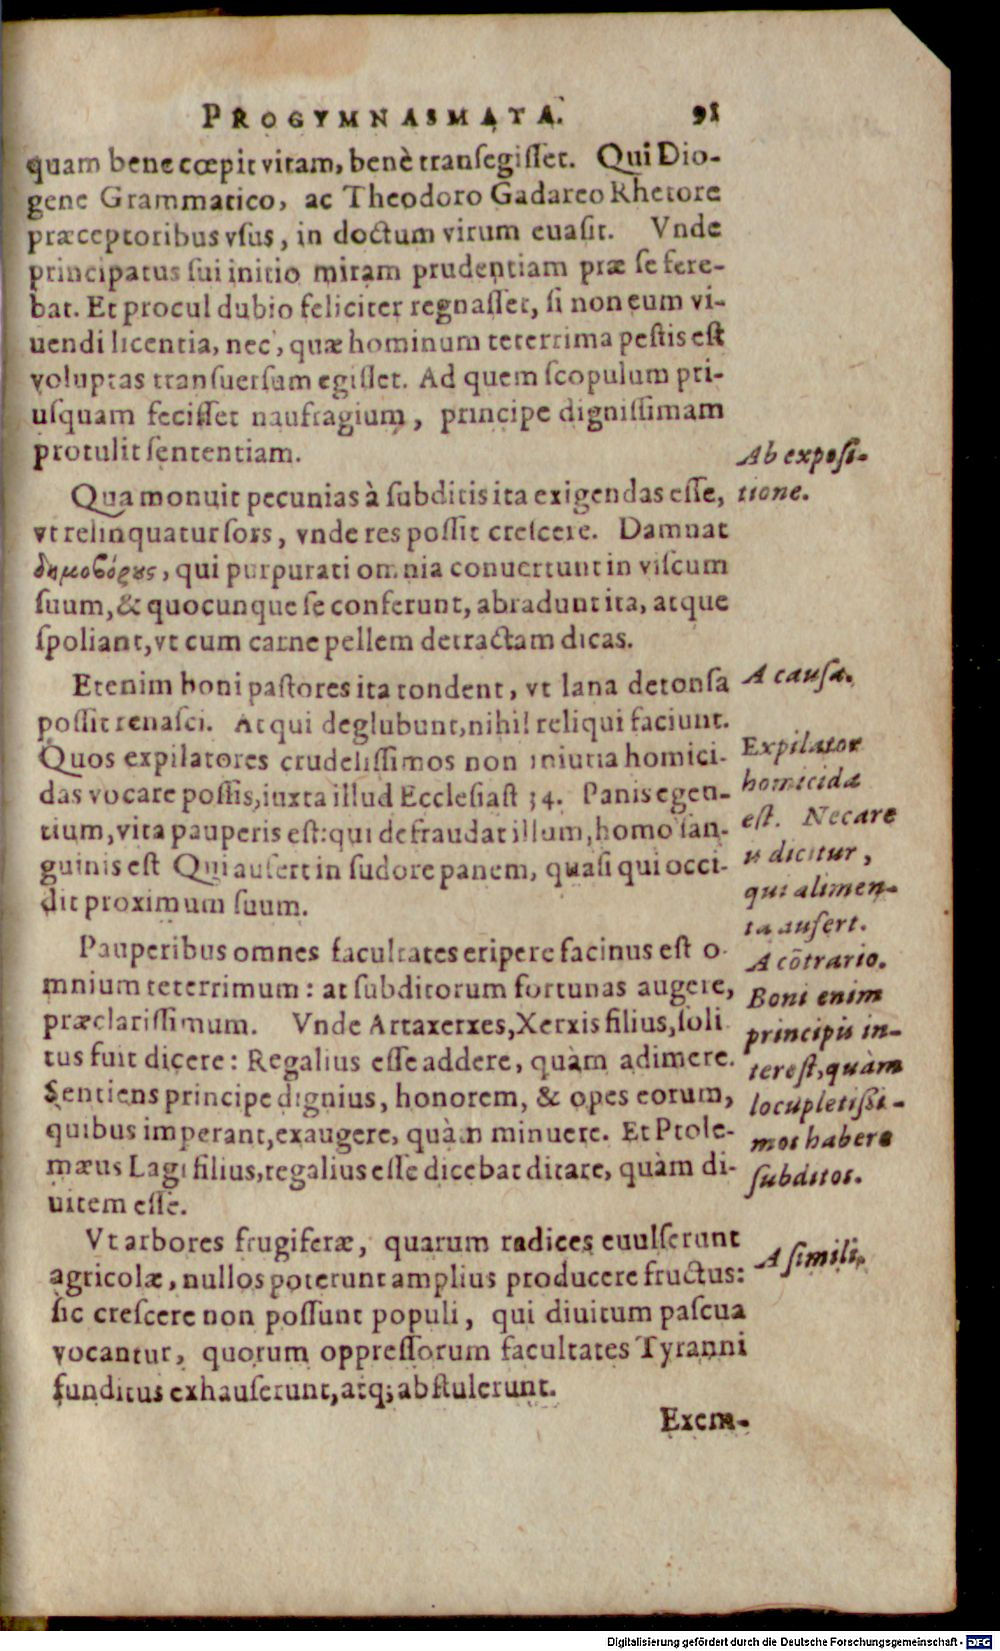 PROGYMNASMATA. 91
quam bene cœpit vitam, benè transegisset. Qui Dio-
gene Grammatico, ac Theodoro Gadareo Rhetore
præceptoribus vsus, in doctum virum euasit. Vnde
principatus sui initio miram prudentiam præ se fere-
bat. Et procul dubio feliciter regnasset, si non eum vi-
uendi licentia, nec, quæ hominum teterrima pestis est
voluptas transuersum egisset. Ad quem scopulum pri-
usquam fecisset naufragium, principe dignissimam
protulit sententiam.
Qua monuit pecunias à subditis ita exigendas esse,
vt relinquatur sors, vnde res possit crescere. Damnat
δημοβόρους, qui purpurati omnia conuertunt in viscum
suum, & quocunque se conferunt, abradunt ita, atque
spoliant, vt cum carne pellem detractam dicas.
Etenim boni pastores ita tondent, vt lana detonsa
possit renasci. At qui deglubunt, nihil reliqui faciunt.
Quos expilatores crudelissimos non iniuria homici-
das vocare possis, iuxta illud Ecclesiast 34. Panis egen-
tium, vita pauperis est: qui defraudat illum, homo san-
guinis est Qui aufert in sudore panem, quasi qui occi-
dit proximum suum.
Pauperibus omnes facultates eripere facinus est o-
mnium teterrimum: at subditorum fortunas augere,
præclarissimum. Vnde Artaxerxes, Xerxis filius, soli
tus fuit dicere: Regalius esse addere, quàm adimere.
Sentiens principe dignius, honorem, & opes eorum,
quibus imperant, exaugere, quàm minuere. Et Ptole-
mæus Lagi filius, regalius esse dicebat ditare, quàm di-
uitem esse.
Vt arbores frugiferæ, quarum radices euulserunt
agricolæ, nullos poterunt amplius producere fructus:
sic crescere non possunt populi, qui diuitum pascua
vocantur, quorum oppressorum facultates Tyranni
funditus exhauserunt, atq; abstulerunt.
Exem-
Ab exposi-
tione.
A causa.
Expilator
homicida
est. Necare
is dicitur,
qui alimen-
ta aufert.
A cōtrario.
Boni enim
principis in-
terest, quàm
locupletissi-
mos habere
subditos.
A simili.
Digitalisierung gefördert durch die Deutsche Forschungsgemeinschaft - DFG